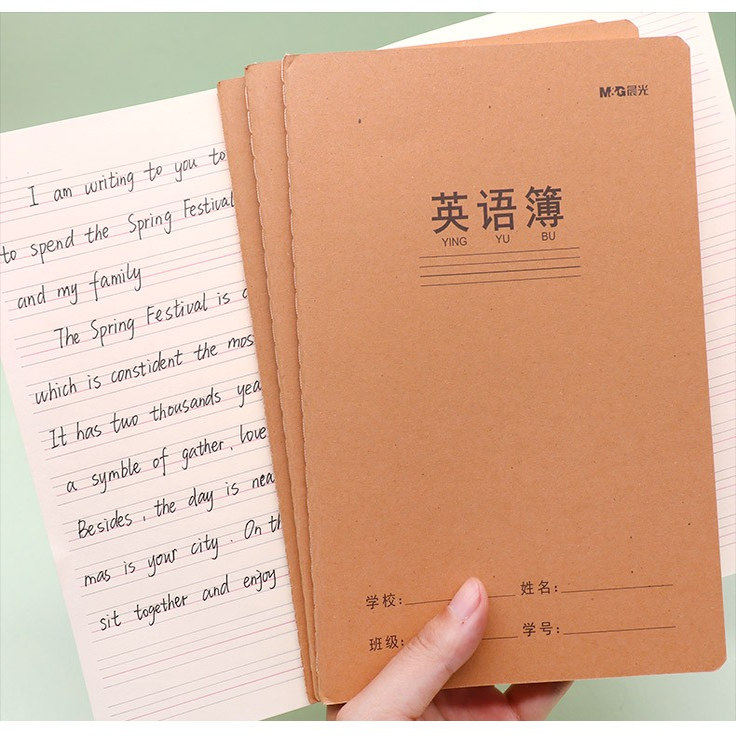 I am writing to you to
to spend the Spring Festival
and my family
The Spring Festival is
which is constident the mos
It has two thousands yea
a symble of gather, love
Besides, the day is nea
mas is your city. On th
sit together and enjoy
M&G晨光
英语簿
YING YU BU
学校:
姓名:
班级:
学号: